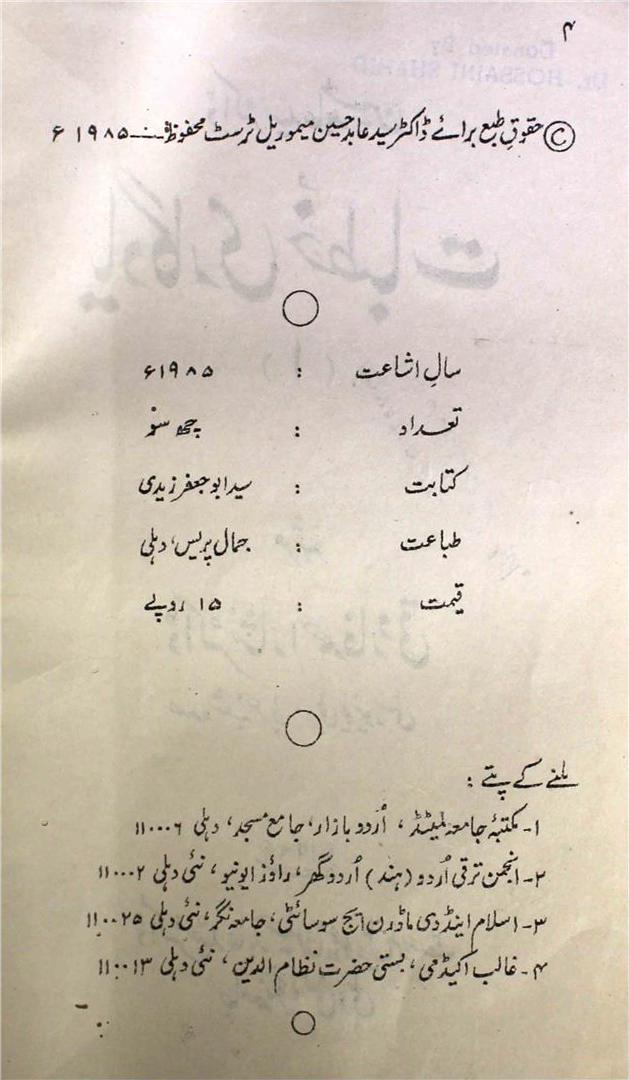 ۴
© حقوقِ طبع برائے ڈاکٹر سید عابد حسین میموریل ٹرسٹ محفوظ ۱۹۸۵ء
سالِ اشاعت : ۱۹۸۵ء
تعداد : چھ سو
کتابت : سید ابو جعفر زیدی
طباعت : جمال پریس، دہلی
قیمت : ۱۵ روپے
ملنے کے پتے :
۱- مکتبۂ جامعہ لمیٹڈ، اُردو بازار، جامع مسجد، دہلی ۱۱۰۰۰۶
۲- انجمن ترقی اُردو (ہند) اُردو گھر، راؤز ایونیو، نئی دہلی ۱۱۰۰۰۲
۳- اسلام اینڈ دی ماڈرن ایج سوسائٹی، جامعہ نگر، نئی دہلی ۱۱۰۰۲۵
۴- غالب اکیڈمی، بستی حضرت نظام الدین، نئی دہلی ۱۱۰۰۱۳